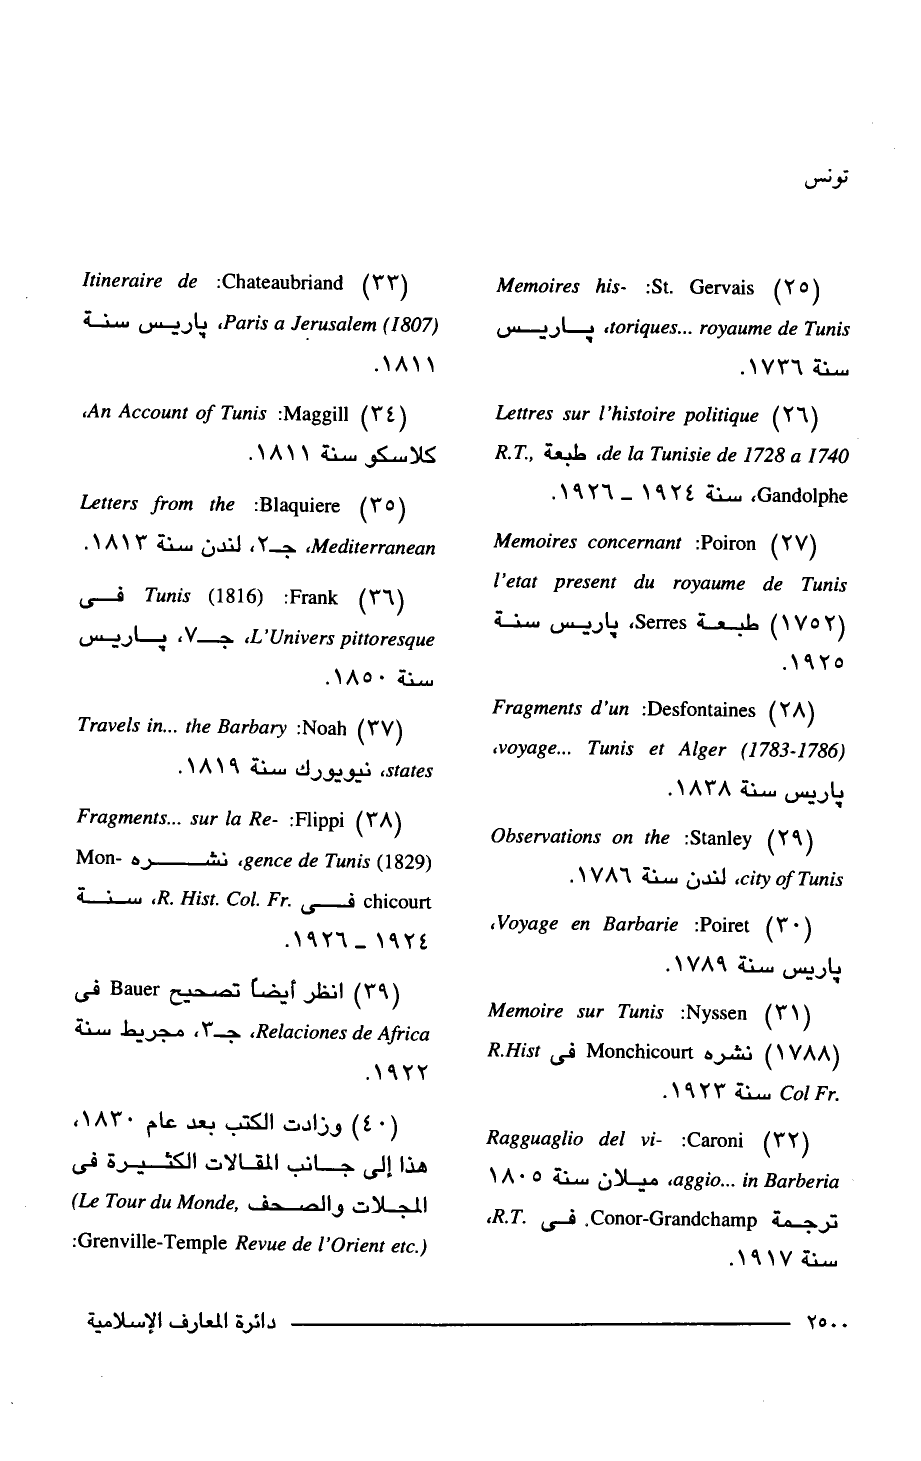 تونس
(٢٥) St. Gervais: Memoires his-
toriques... royaume de Tunis، پاريس
سنة ١٧٣٦.
(٢٦) Lettres sur l'histoire politique
de la Tunisie de 1728 a 1740، طبعة R.T.,
Gandolphe، سنة ١٩٢٤ _ ١٩٢٦.
(٢٧) Poiron: Memoires concernant
l'etat present du royaume de Tunis
(١٧٥٢) طبعة Serres، پاريس سنة
١٩٢٥.
(٢٨) Desfontaines: Fragments d'un
voyage... Tunis et Alger (1783-1786)،
پاريس سنة ١٨٣٨.
(٢٩) Stanley: Observations on the
city of Tunis، لندن سنة ١٧٨٦.
(٣٠) Poiret: Voyage en Barbarie،
پاريس سنة ١٧٨٩.
(٣١) Nyssen: Memoire sur Tunis
(١٧٨٨) نشره Monchicourt فى R.Hist
Col Fr. سنة ١٩٢٣.
(٣٢) Caroni: Ragguaglio del vi-
aggio... in Barberia، ميلان سنة ١٨٠٥
ترجمة Conor-Grandchamp. فى R.T.،
سنة ١٩١٧.
(٣٣) Chateaubriand: Itineraire de
Paris a Jerusalem (1807)، پاريس سنة
١٨١١.
(٣٤) Maggill: An Account of Tunis،
كلاسكو سنة ١٨١١.
(٣٥) Blaquiere: Letters from the
Mediterranean، جـ٢، لندن سنة ١٨١٣.
(٣٦) Frank: Tunis (1816) فى
L'Univers pittoresque، جـ٧، پاريس
سنة ١٨٥٠.
(٣٧) Noah: Travels in... the Barbary
states، نيويورك سنة ١٨١٩.
(٣٨) Flippi: Fragments... sur la Re-
gence de Tunis (1829)، نشره Mon-
chicourt فى R. Hist. Col. Fr.، سنة
١٩٢٤ _ ١٩٢٦.
(٣٩) انظر أيضاً تصحيح Bauer فى
Relaciones de Africa، جـ٣، مجريط سنة
١٩٢٢.
(٤٠) وزادت الكتب بعد عام ١٨٣٠،
هذا إلى جانب المقالات الكثيرة فى
المجلات والصحف (Le Tour du Monde,
Revue de l'Orient etc.) Grenville-Temple:
٢٥٠٠ دائرة المعارف الإسلامية